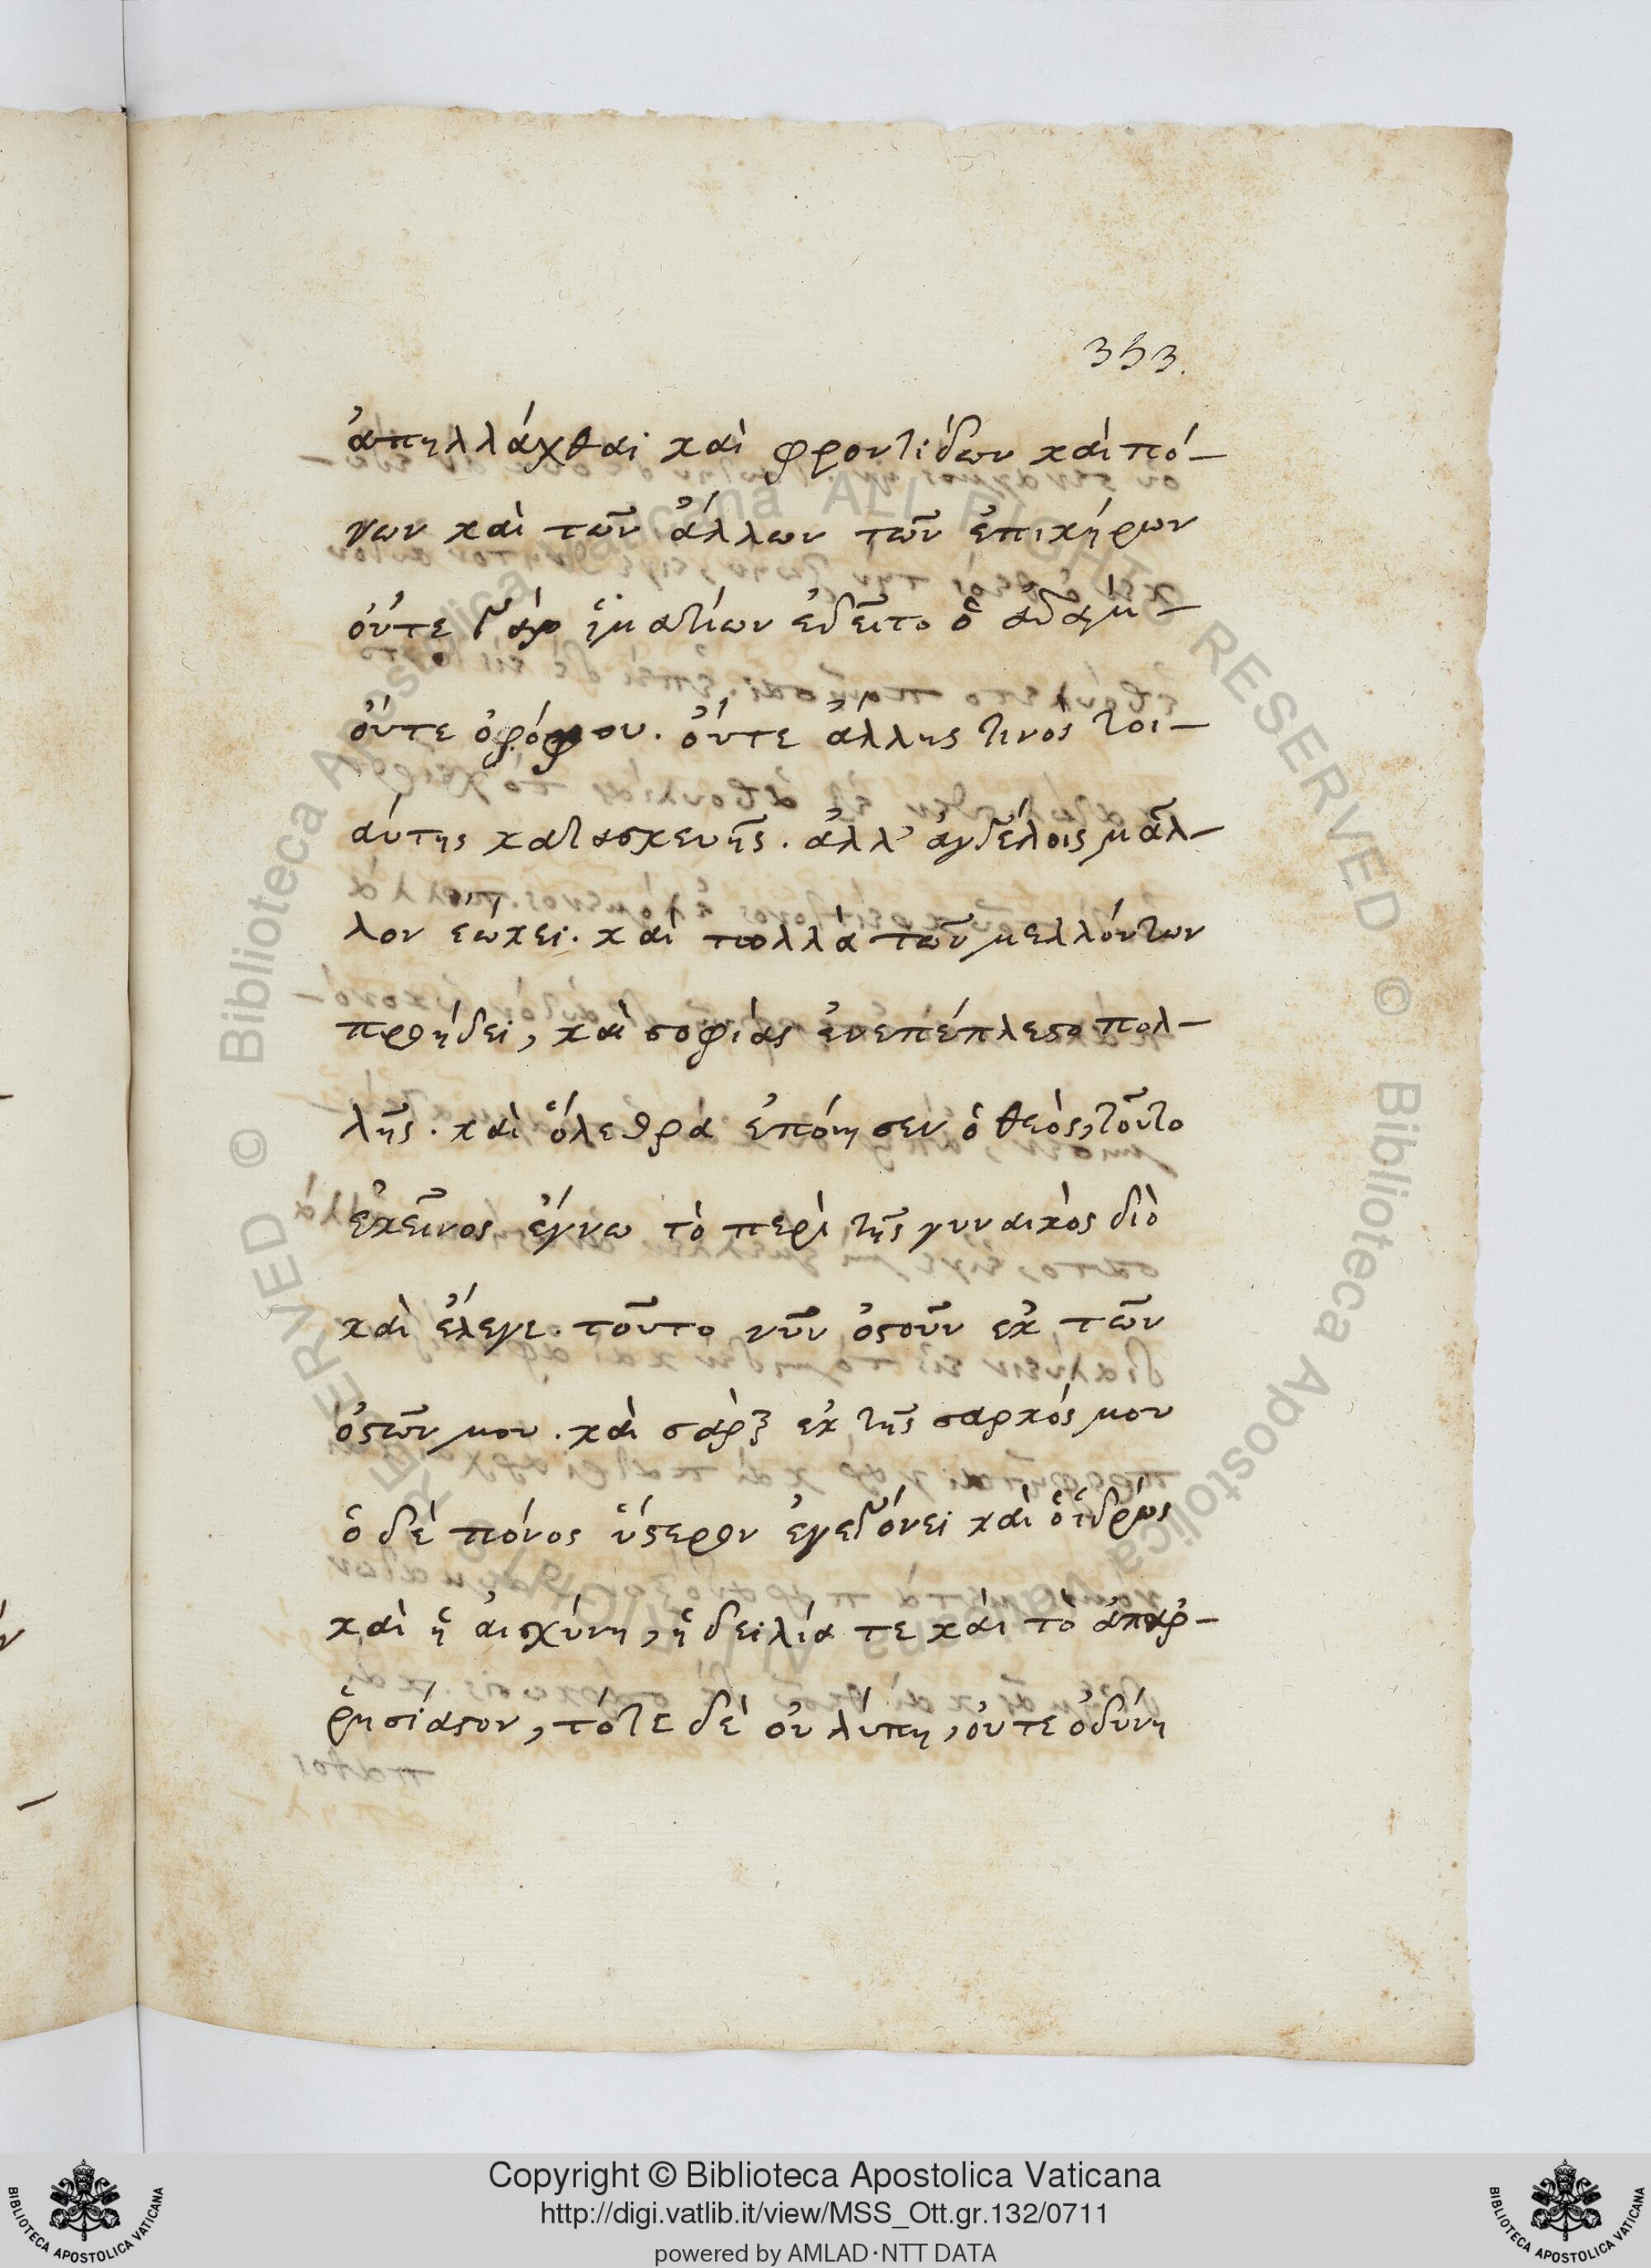 353.
ἀπηλλάχθαι καὶ φροντίδων καὶ πό-
νων καὶ τῶν ἄλλων τῶν ἐπικήρων
οὔτε γὰρ ἱματίων ἐδεῖτο ὁ ἀδὰμ-
οὔτε ὀρόφου. οὔτε ἄλλης τινὸς τοι-
αύτης κατασκευῆς. ἀλλ' ἀγγέλοις μᾶλ-
λον ἐώκει. καὶ πολλὰ τῶν μελλόντων
προήδει, καὶ σοφίας ἐνεπέπλεστο πολ-
λῆς. καὶ ὅ λεθρά ἐποίησεν ὁ θεὸς, τοῦτο
ἐκεῖνος ἔγνω τὸ περὶ τῆς γυναικὸς διὸ
καὶ ἔλεγε. τοῦτο νῦν ὀστοῦν ἐκ τῶν
ὀστῶν μου. καὶ σὰρξ ἐκ τῆς σαρκός μου
ὁ δὲ πόνος ὕστερον ἐγεγόνει καὶ ὁ ἱδρώς
καὶ ἡ αἰσχύνη, ἡ δειλία τε καὶ τὸ ἀπαρ-
ρησίαστον, τότε δὲ οὐ λύπη, οὔτε ὀδύνη
Copyright © Biblioteca Apostolica Vaticana
http://digi.vatlib.it/view/MSS_Ott.gr.132/0711
powered by AMLAD·NTT DATA